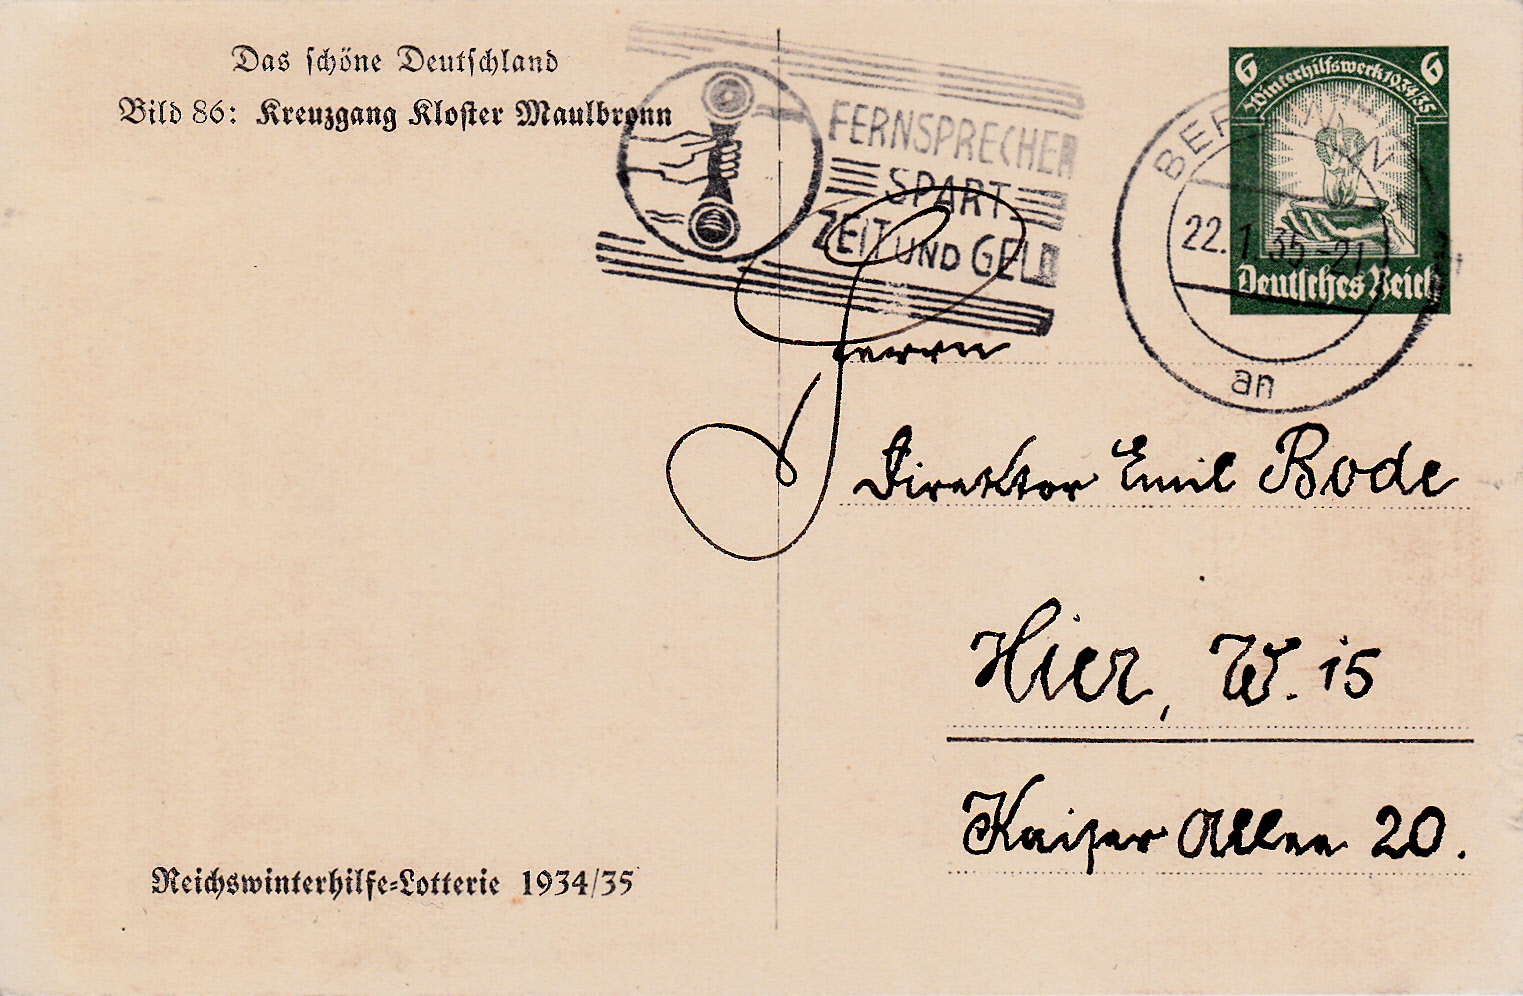 Das schöne Deutschland
Bild 86: Kreuzgang Kloster Maulbronn
FERNSPRECHER
SPART
ZEIT UND GELD
6 6
Winterhilfswerk 1934/35
Deutsches Reich
BERLIN W
22.1.35-21
an
Herrn
Direktor Emil Bode
Hier, W. 15
Kaiser Allee 20.
Reichswinterhilfe-Lotterie 1934/35